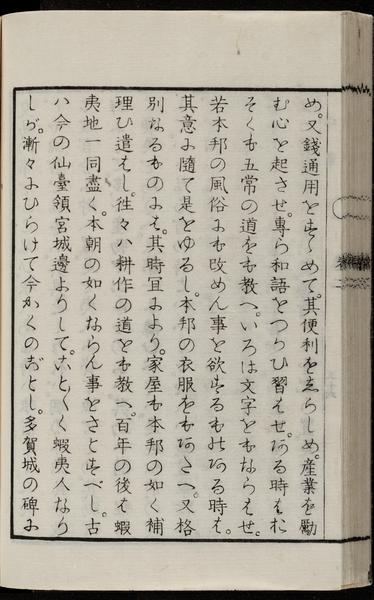 め。又錢通用をすゝめて。其便利をゑらしめ。産業を勵
む心を起させ。専ら和語をつかひ習はせ。ある時はお
そくも五常の道をも教へ。いろは文字をもならはせ。
若本邦の風俗にも改めん事を欲するものある時は。
其意に隨て是をゆるし。本邦の衣服をもあたへ。又格
別なるものには。其時宜により。家屋も本邦の如く補
理ひ遣はし。往々ハ耕作の道をも教へ。百年の後は蝦
夷地一同盡く。本朝の如くならん事をさとすべし。古
ハ今の仙臺領宮城邊よりして。ことごとく蝦夷人なり
しが。漸々にひらけて今かくのごとし。多賀城の碑に